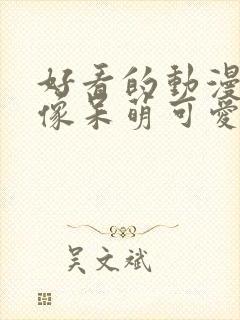 好看的動漫
像呆萌可愛
吴文斌